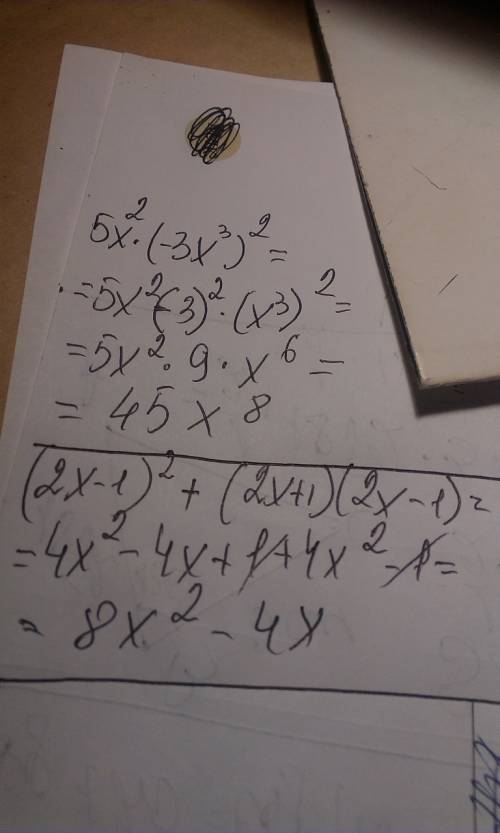 5x²·(-3x³)²=
=5x²(-3)²·(x³)²=
=5x²·9·x⁶=
=45x⁸
(2x-1)²+(2x+1)(2x-1)=
=4x²-4x+1+4x²-1=
=8x²-4x